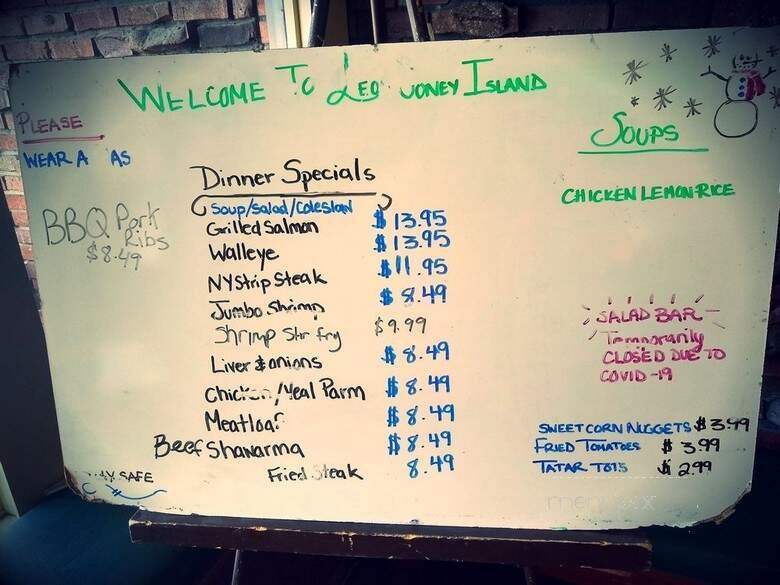 WELCOME TO LEO CONEY ISLAND
PLEASE
WEAR A AS
BBQ Pork
Ribs
$8.49
Dinner Specials
Soup/Salad/Coleslaw
Grilled Salmon $13.95
Walleye $13.95
NY Strip Steak $11.95
Jumbo Shrimp $8.49
Shrimp Stir fry $9.99
Liver & onions $8.49
Chicken/Veal Parm $8.49
Meatloaf $8.49
Beef Shawarma $8.49
Fried Steak 8.49
SAFE
SOUPS
CHICKEN LEMON RICE
SALAD BAR
Temporarily
CLOSED DUE TO
COVID-19
SWEET CORN NUGGETS $3.99
FRIED TOMATOES $3.99
TATAR TOTS $2.99